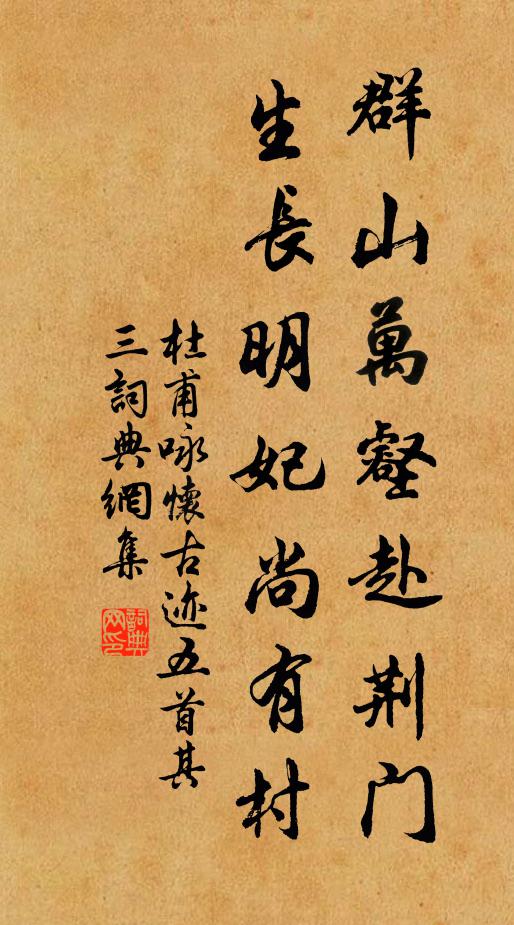 群山萬壑赴荆门
生長明妃尚有村
杜甫咏懷古迹五首其
三詞典網集
詞典
网印